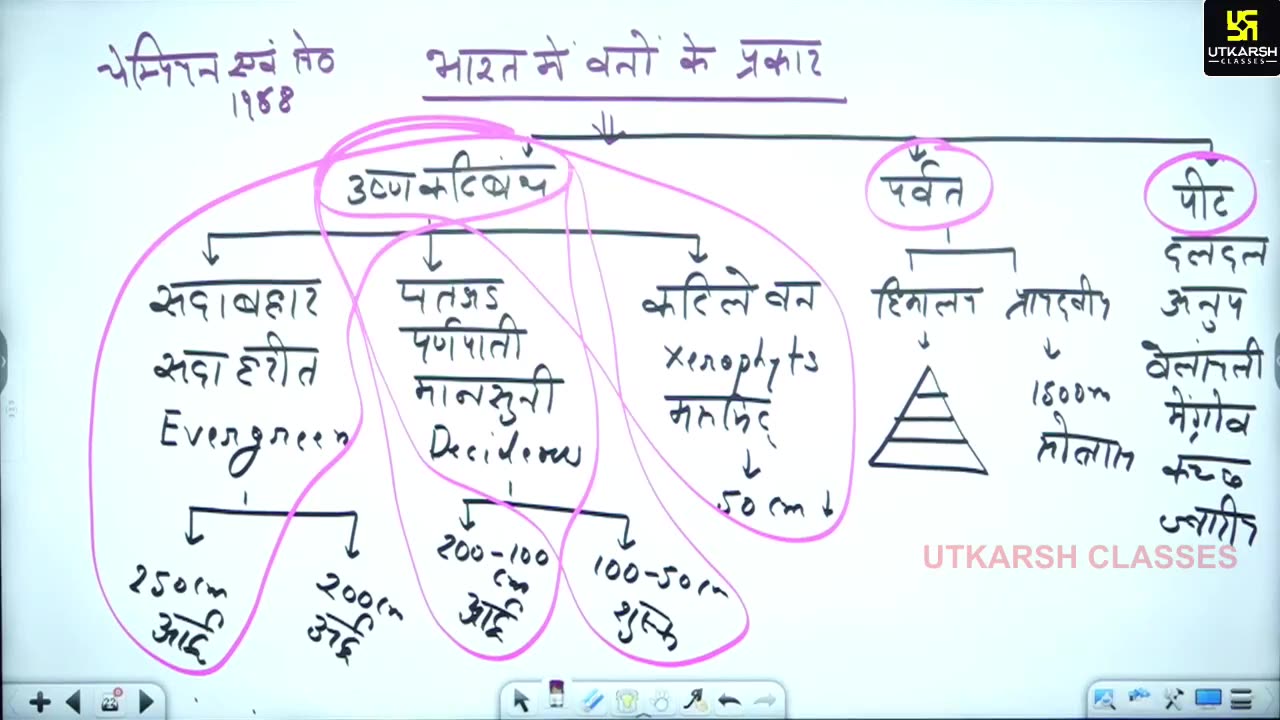 चेम्पियन एवं सेठ
1968
भारत में वनों के प्रकार
UTKARSH
CLASSES
उष्ण कटिबंध
पर्वत
पीट
सदाबहार
सदा हरीत
Evergreen
250cm
आर्द्र
200cm
अर्द्ध
पतझड
पर्णपाती
मानसुनी
200-100
cm
आर्द्र
100-50cm
शुष्क
कटिले वन
xerophyts
मरुभिद्
50cm↓
हिमालय
प्रायद्वीप
1500m
दलदल
अनुप
वेलांचली
मेंग्रोव
कच्छ
ज्वारीय
UTKARSH CLASSES
23